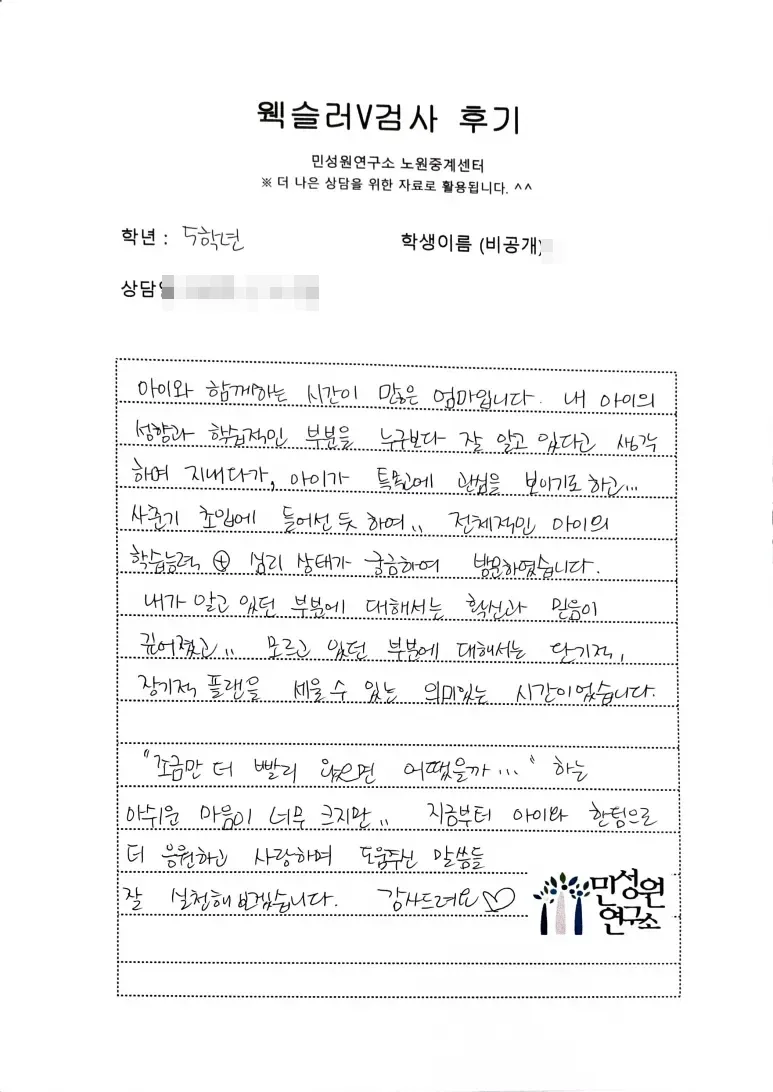 웩슬러V검사 후기
민성원연구소 노원중계센터
※ 더 나은 상담을 위한 자료로 활용됩니다. ^^
학년 : 5학년
학생이름 (비공개)
상담
아이와 함께하는 시간이 많은 엄마입니다. 내 아이의
성향과 학습적인 부분을 누구보다 잘 알고 있다고 생각
하며 지내다가, 아이가 특목고에 관심을 보이기도 하고...
사춘기 초입에 들어선 듯 하여.. 전체적인 아이의
학습능력 ⊕ 심리 상태가 궁금하여 방문하였습니다.
내가 알고 있던 부분에 대해서는 확신과 믿음이
깊어졌고.. 모르고 있던 부분에 대해서는 단기적,
장기적 플랜을 세울 수 있는 의미있는 시간이었습니다.
"조금만 더 빨리 왔으면 어땠을까..." 하는
아쉬운 마음이 너무 크지만.. 지금부터 아이와 한팀으로
더 응원하고 사랑하며 도움주신 말씀들
잘 실천해 보겠습니다. 감사드려요♡
민성원
연구소